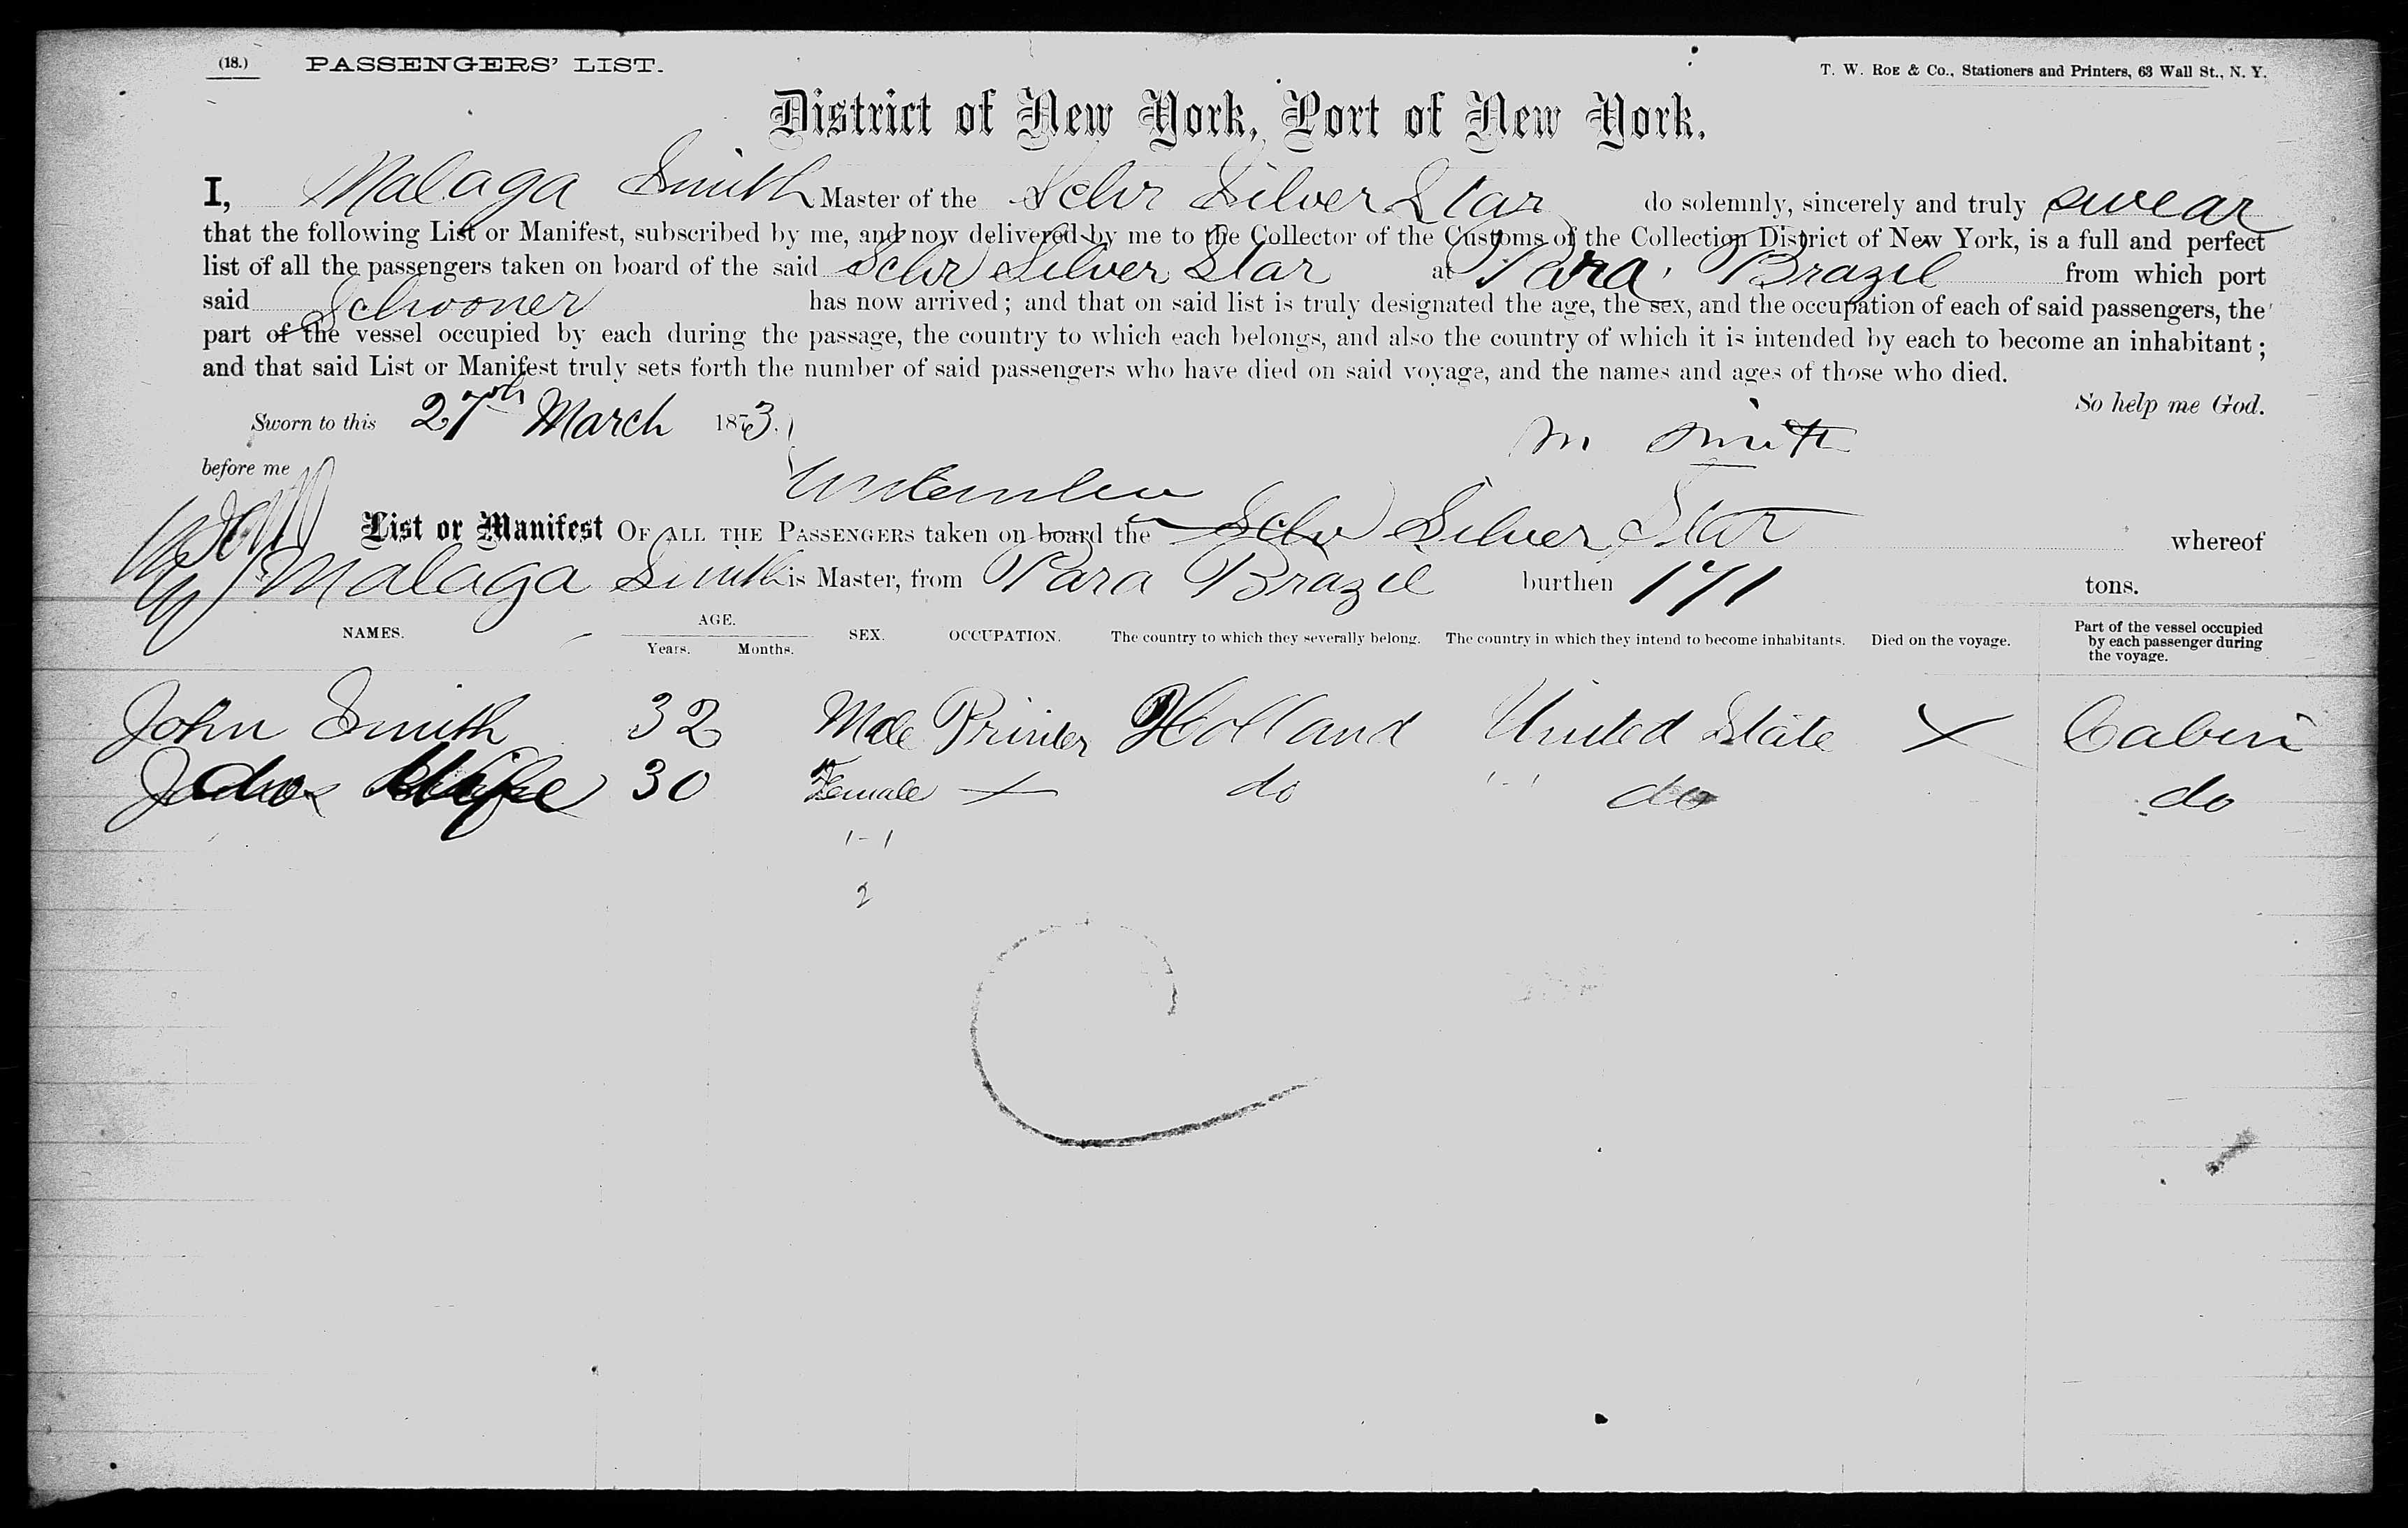 (18.) PASSENGERS' LIST. T. W. ROE & Co., Stationers and Printers, 63 Wall St., N. Y.
District of New York, Port of New York.
I, Malaga Smith Master of the Schr Silver Star do solemnly, sincerely and truly swear
that the following List or Manifest, subscribed by me, and now delivered by me to the Collector of the Customs of the Collection District of New York, is a full and perfect
list of all the passengers taken on board of the said Schr Silver Star at Para, Brazil from which port
said Schooner has now arrived; and that on said list is truly designated the age, the sex, and the occupation of each of said passengers, the
part of the vessel occupied by each during the passage, the country to which each belongs, and also the country of which it is intended by each to become an inhabitant;
and that said List or Manifest truly sets forth the number of said passengers who have died on said voyage, and the names and ages of those who died.
So help me God.
Sworn to this 27th March 1873.
M Smith
before me
List or Manifest OF ALL THE PASSENGERS taken on board the Schr Silver Star whereof
Malaga Smith is Master, from Para Brazil burthen 171 tons.
NAMES. AGE. Years. Months. SEX. OCCUPATION. The country to which they severally belong. The country in which they intend to become inhabitants. Died on the voyage. Part of the vessel occupied by each passenger during the voyage.
John Smith 32 Male Printer Holland United State X Cabin
do Wife 30 Female do do do
1 - 1
2